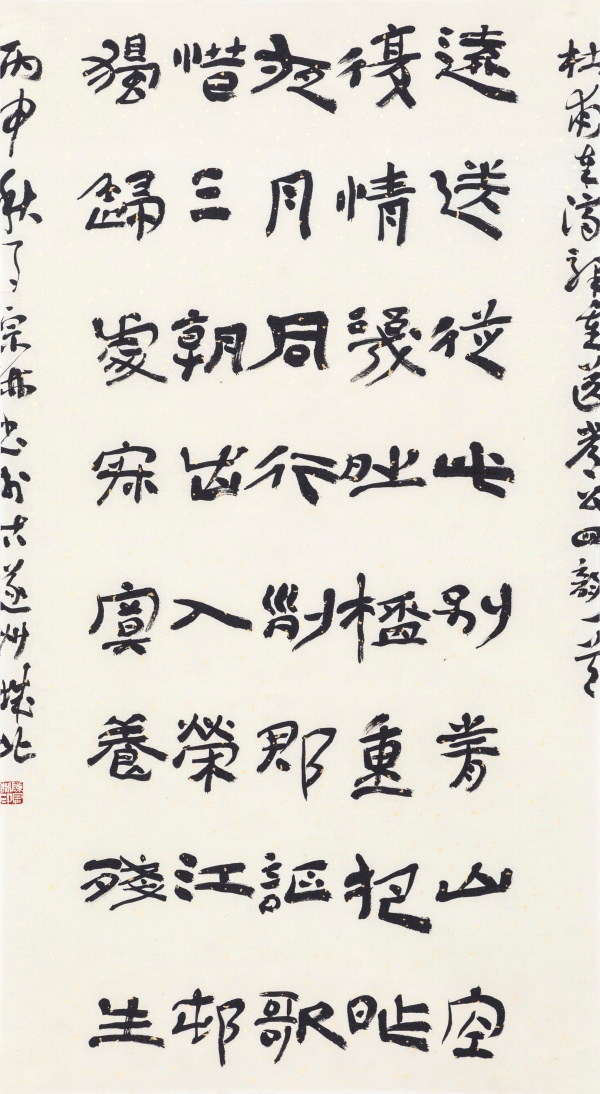 杜甫奉濟驛重送嚴公四韻一首
遠送從此別青山空
復情幾時杯重把昨
夜月同行列郡謳歌
惜三朝出入榮江邨
獨歸處寂寞養殘生
丙申秋 宗 書於古遂州城北